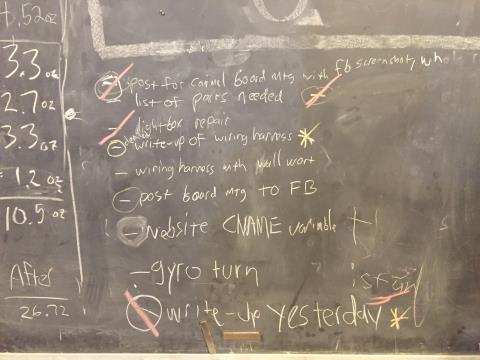 7.52oz
3.3 oz
2.7 oz
3.3 oz
1.2 oz
10.5 oz
After
26.72
- post for board mtg with FB screenshot, who
- list of parts needed
- lightbox repair
- detailed write-up of wiring harness *
- wiring harness with wall wart
- post board mtg to FB
- website CNAME variable
- gyro turn
- write-up yesterday *